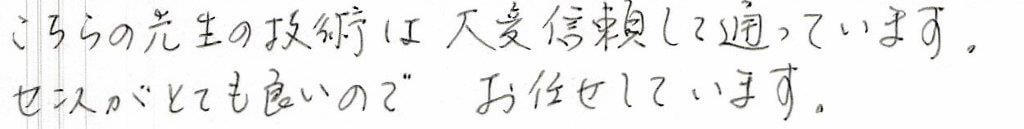 こちらの先生の技術は大変信頼して通っています。
センスがとても良いので お任せしています。